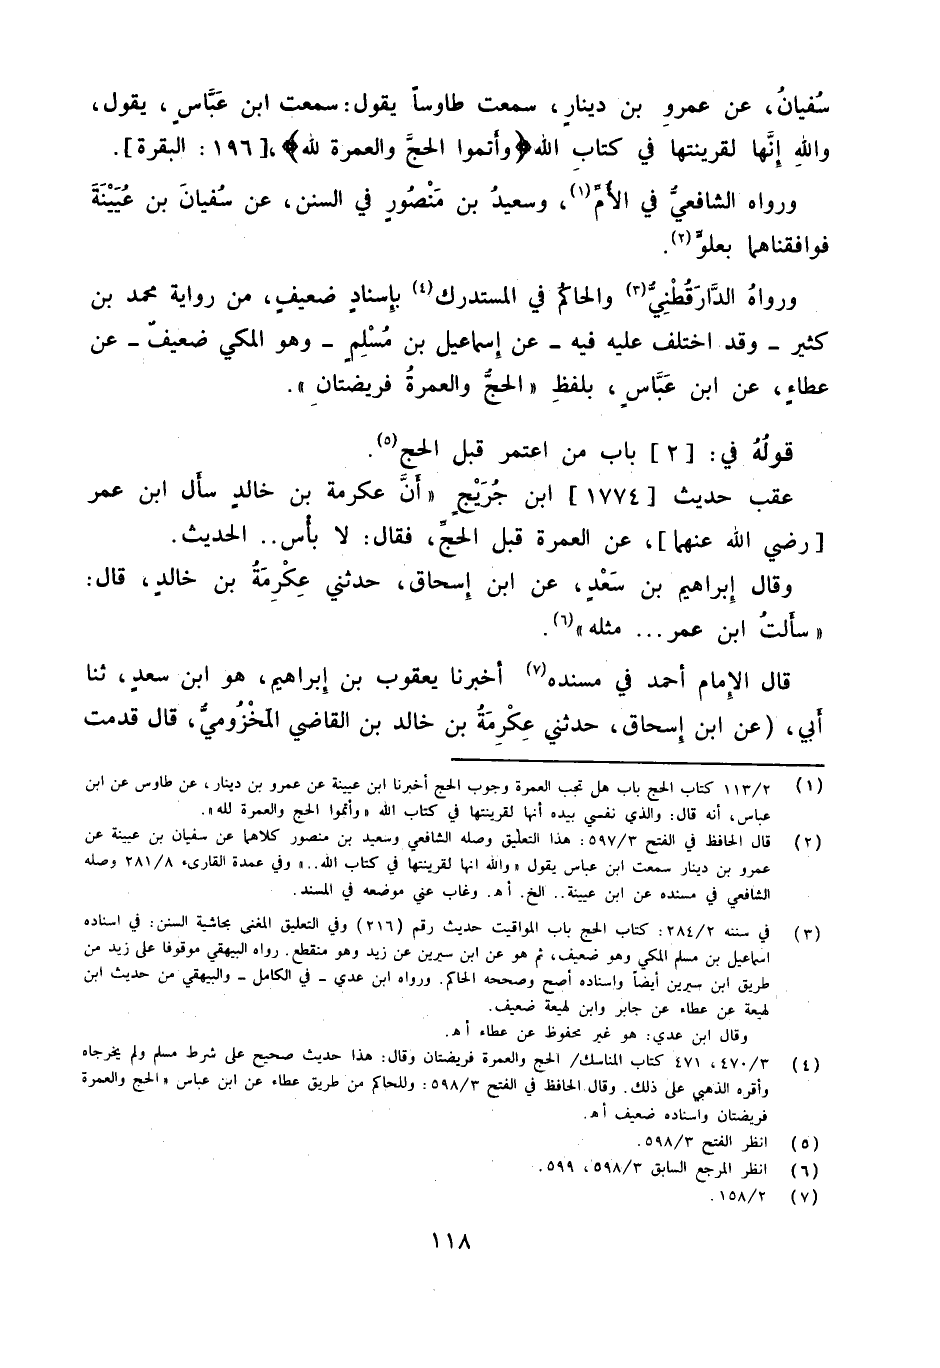 سُفيانُ، عن عمرو بن دينارٍ، سمعت طاوساً يقول: سمعت ابن عَبَّاسٍ، يقول،
واللهِ إنَّها لقرينتها في كتاب الله ﴿وأتموا الحجَّ والعمرة لله﴾،[١٩٦: البقرة].
ورواه الشافعيُّ في الأُمِّ(١)، وسعيدُ بن مَنْصُورٍ في السنن، عن سُفيانَ بن عُيَيْنَةَ
فوافقناهما بعلوٍّ(٢).
ورواهُ الدَّارَقُطْنِيُّ(٣) والحاكمُ في المستدرك(٤) بإسنادٍ ضعيفٍ، من رواية محمد بن
كثير ـ وقد اختلف عليه فيه ـ عن إسماعيل بن مُسْلِمٍ ـ وهو المكي ضعيفٌ ـ عن
عطاءٍ، عن ابن عَبَّاسٍ، بلفظِ «الحجُّ والعمرةُ فريضتانِ».
قولُهُ في: [٢] باب من اعتمر قبل الحج(٥).
عقب حديث [١٧٧٤] ابن جُرَيْجٍ «أنَّ عكرمة بن خالدٍ سأل ابن عمر
[رضي الله عنهما]، عن العمرة قبل الحجِّ، فقال: لا بأس.. الحديث.
وقال إبراهيم بن سَعْدٍ، عن ابن إسحاق، حدثني عِكْرِمَةُ بن خالدٍ، قال:
«سألتُ ابن عمر... مثله»(٦).
قال الإمام أحمد في مسنده(٧) أخبرنا يعقوب بن إبراهيم، هو ابن سعدٍ، ثنا
أبي، (عن ابن إسحاق، حدثني عِكْرِمَةُ بن خالد بن القاضي المَخْزُوميُّ، قال قدمت
(١) ١١٣/٢ كتاب الحج باب هل تجب العمرة وجوب الحج أخبرنا ابن عيينة عن عمرو بن دينار، عن طاوس عن ابن
عباس، أنه قال: والذي نفسي بيده أنها لقرينتها في كتاب الله «وأتموا الحج والعمرة لله».
(٢) قال الحافظ في الفتح ٥٩٧/٣: هذا التعليق وصله الشافعي وسعيد بن منصور كلاهما عن سفيان بن عيينة عن
عمرو بن دينار سمعت ابن عباس يقول «والله انها لقرينتها في كتاب الله..» وفي عمدة القارىء ٢٨١/٨ وصله
الشافعي في مسنده عن ابن عيينة.. الخ. أهـ. وغاب عني موضعه في المسند.
(٣) في سننه ٢٨٤/٢: كتاب الحج باب المواقيت حديث رقم (٢١٦) وفي التعليق المغني بحاشية السنن: في اسناده
اسماعيل بن مسلم المكي وهو ضعيف، ثم هو عن ابن سيرين عن زيد وهو منقطع. رواه البيهقي موقوفا على زيد من
طريق ابن سيرين أيضاً واسناده أصح وصححه الحاكم. ورواه ابن عدي ـ في الكامل ـ والبيهقي من حديث ابن
لهيعة عن عطاء عن جابر وابن لهيعة ضعيف.
وقال ابن عدي: هو غير محفوظ عن عطاء أهـ.
(٤) ٤٧٠/٣، ٤٧١ كتاب المناسك/ الحج والعمرة فريضتان وقال: هذا حديث صحيح على شرط مسلم ولم يخرجاه
وأقره الذهبي على ذلك. وقال الحافظ في الفتح ٥٩٨/٣: وللحاكم من طريق عطاء عن ابن عباس «الحج والعمرة
فريضتان واسناده ضعيف أهـ.
(٥) انظر الفتح ٥٩٨/٣.
(٦) انظر المرجع السابق ٥٩٨/٣، ٥٩٩.
(٧) ١٥٨/٢.
١١٨